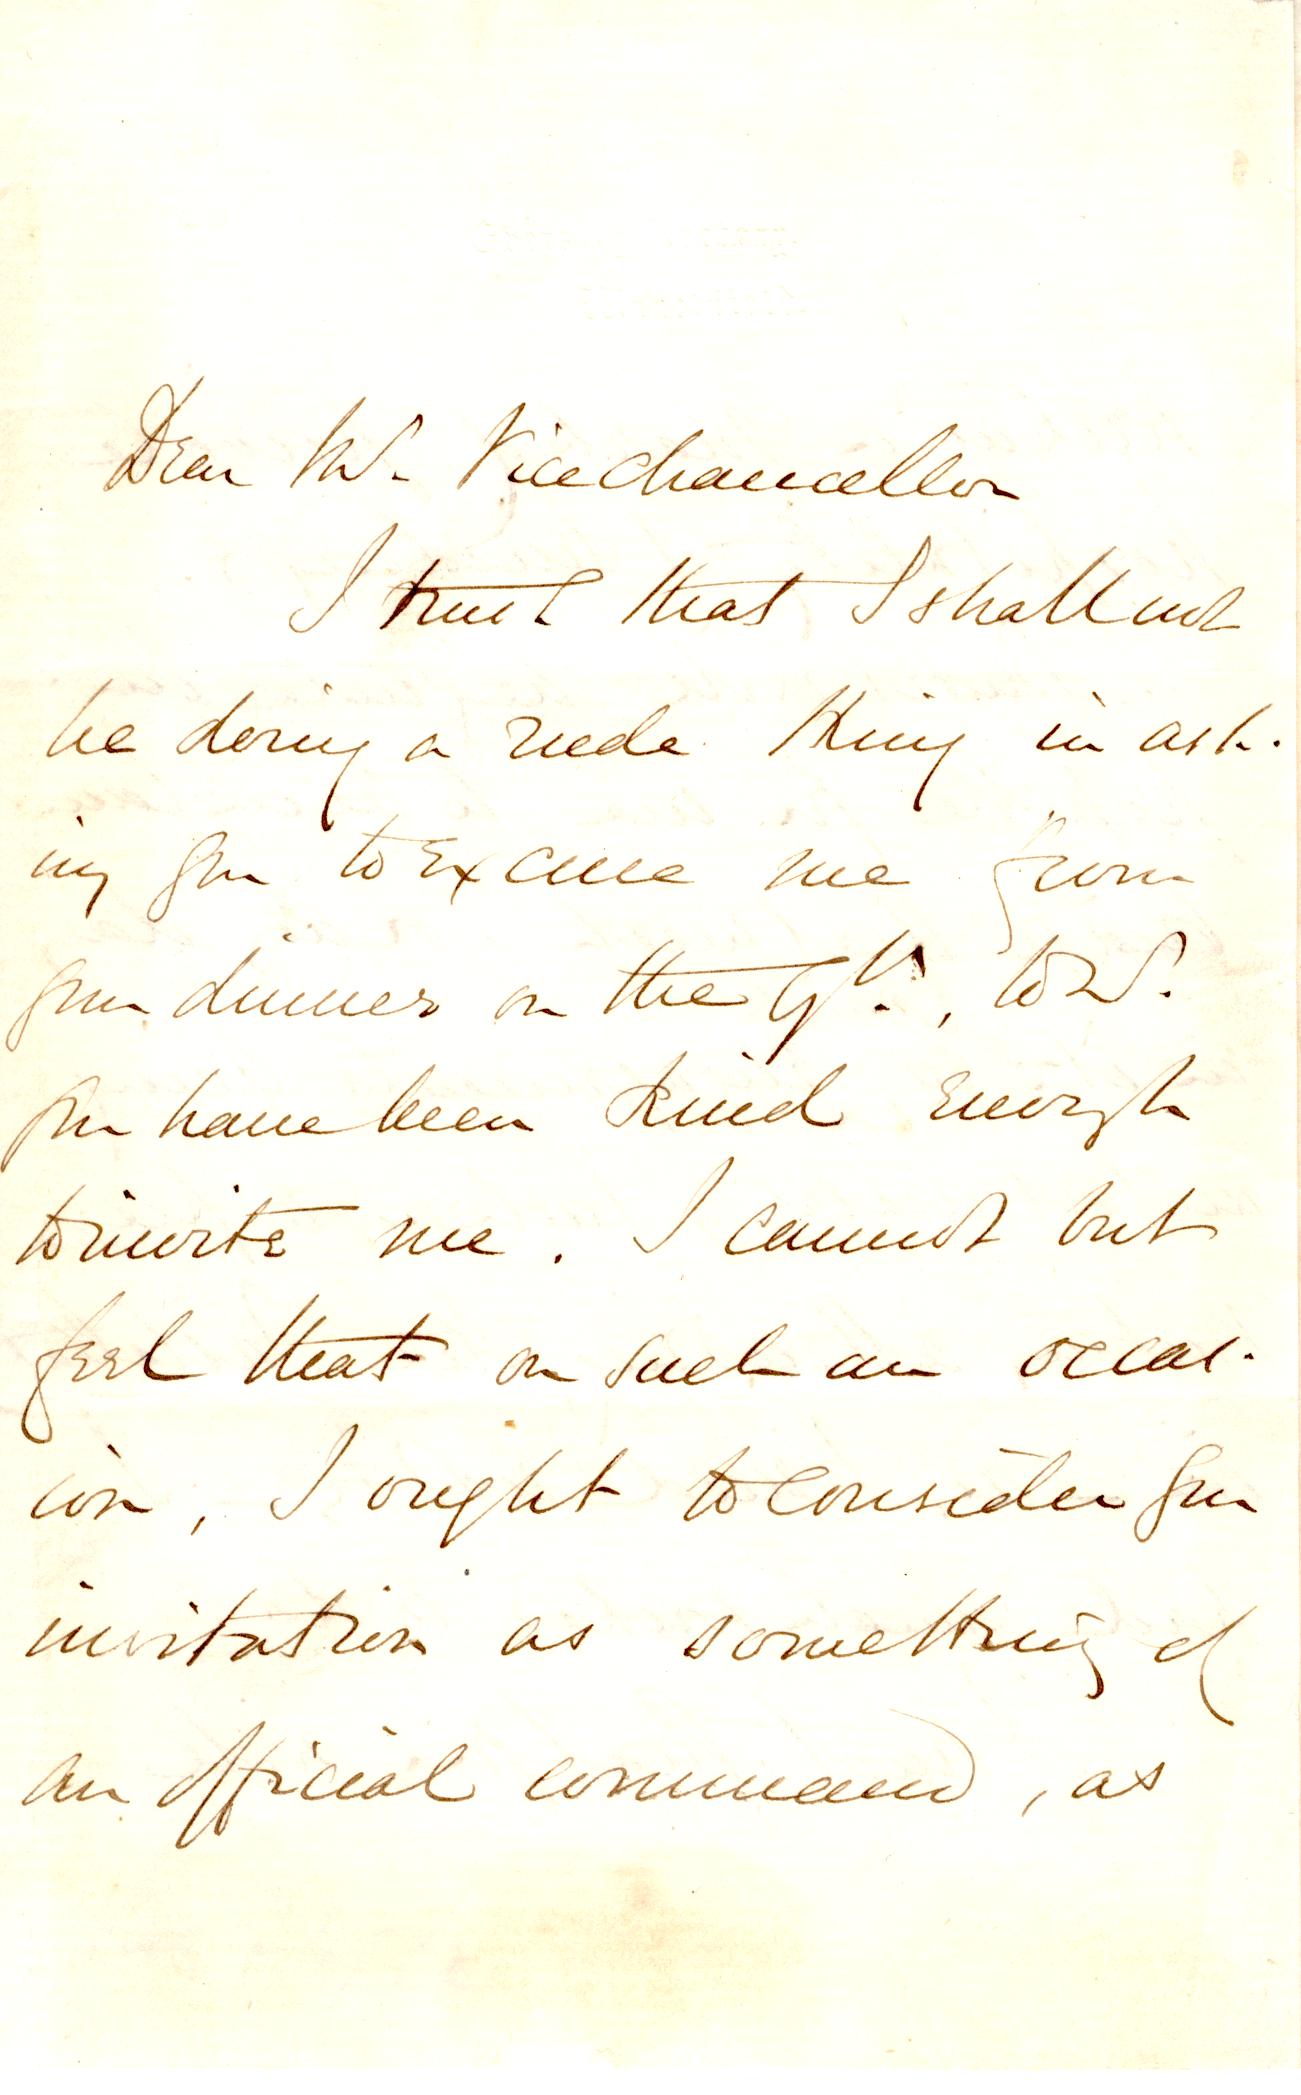 Dear Mr. Vicechancellor
I trust that I shall not
be doing a rude thing in ask-
ing you to excuse me from
your dinner on the 9th., to wh.
you have been kind enough
to invite me. I cannot but
feel that on such an occas-
ion, I ought to consider your
invitation as something of
an official command, as